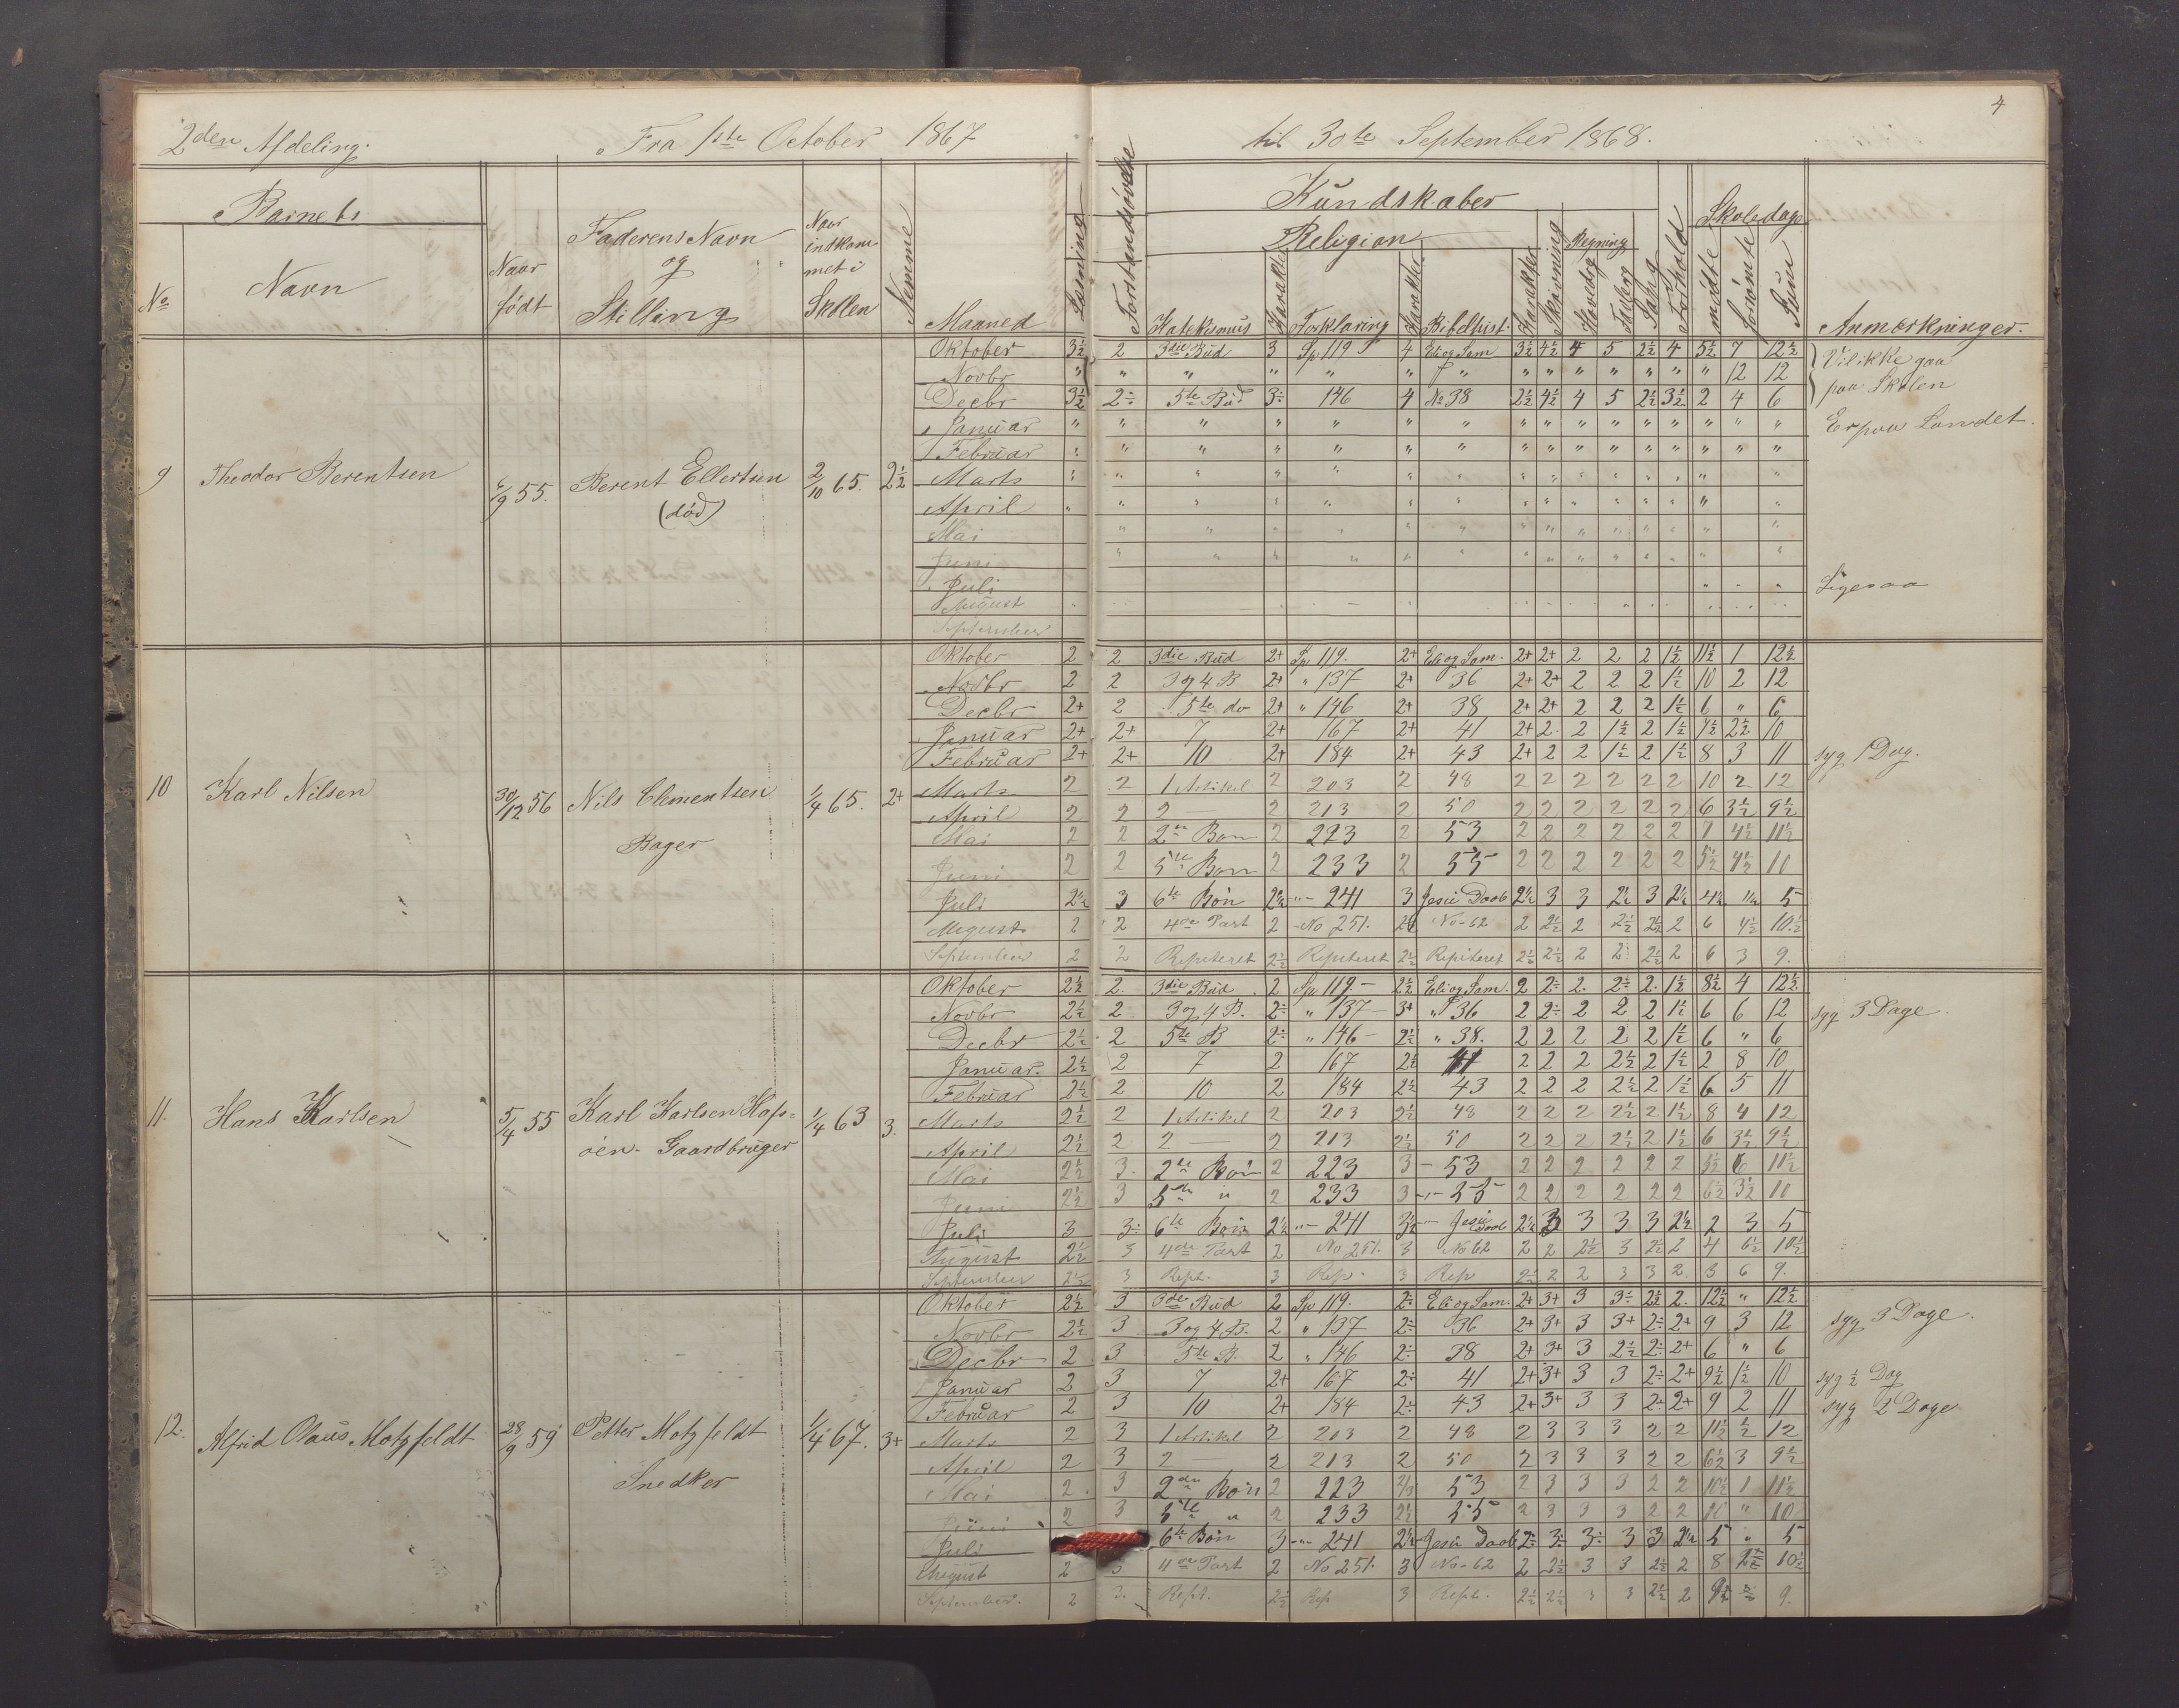 4
2den Afdeling. Fra 1ste October 1867 til 30te September 1868.
Barnets
No Navn
Naar født
Faderens Navn og Stilling
Naar indkommet i Skolen
Nemme
Maaned
Læsning
Forstandsøvelse
Kundskaber
Religion
Katekismus Karakter Forklaring Karakter Bibelhist. Karakter
Skrivning
Regning
Hovedrg Tavlerg
Sang
Forhold
Skoledage
mødte forsømte Sum
Anmærkninger.
9 Theodor Berentsen
Berent Ellertsen (død) 2/10 65. 2½
Oktober 3½ 2 3die Bud 3 Sp 119 4 Eli og Sam 3½ 4½ 4 5 2½ 4 5½ 7 12½ Vil ikke gaa
Novbr " " " " " " " " " " " " " " " 12 12 paa Skolen
Decbr 3½ 2÷ 5te Bud 3÷ 146 4 No 38 2½ 4½ 4 5 2½ 3½ 2 4 6
Januar " " " " " " " " " " " " " " " " " Er paa Landet.
Februar
Marts
April
Mai
Juni
Juli Ligesaa
August
September
10 Karl Nilsen 30/12 56 Nils Clementsen Bager 1/4 65. 2+
Oktober 2 2 3die Bud 2+ Sp 119. 2+ Eli og Sam. 2+ 2+ 2 2 2 1½ 11½ 1 12½
Novbr 2 2 3 og 4 B 2+ " 137 2+ 36 2+ 2+ 2 2 2 1½ 10 2 12
Decbr 2+ 2 5te do 2+ " 146 2+ 38 2+ 2+ 2 2 2 1½ 6 " 6
Januar 2+ 2+ 7 2+ 167 2+ 41 2+ 2 2 1½ 2 1½ 7½ 2½ 10
Februar 2+ 2+ 10 2+ 184 2+ 43 2+ 2 2 1½ 2 1½ 8 3 11 syg 1 Dag.
Marts 2 2 1 Artikel 2 203 2 48 2 2 2 2 2 2 10 2 12
April 2 2 2 2 213 2 50 2 2 2 2 2 2 6 3½ 9½
Mai 2 2 2en Bøn 2 223 2 53 2 2 2 2 2 2 7 4½ 11½
Juni 2 2 5te Bøn 2 233 2 55 2 2 2 2 2 2 5½ 4½ 10
Juli 2½ 3 6te Bøn 2½ "- 241 3 Jesu Daab 2½ 3 3 2½ 3 2½ 4½ ½ 5
August 2 2 4de Part 2 No 251. No-62 2 2½ 2 2½ 2½ 2 6 4½ 10½
September 2 2 Repeteret 2½ Repeteret 2½ Repiteret 2½ 2½ 2 2 2½ 2 6 3 9.
11. Hans Karlsen 5/4 55 Karl Karlsen Hafsøen. Gaardbruger 1/4 63 3.
Oktober 2½ 2. 3die Bud 2 Sp 119.- 2½ Eli og Sam. 2 2÷ 2. 2÷ 2. 1½ 8½ 4 12½
Novbr 2½ 2 3 og 4 B. 2÷ " 137- 3+ " 36 2 2÷ 2 2 2 1½ 6 6 12 syg 3 Dage.
Decbr 2½ 2 5te B 2÷ " 146- 2½ " 38. 2 2 2 2 2 1½ 6 " 6
Januar. 2½ 2 7 2 167 2½ 41 2 2 2 2½ 2 1½ 2 8 10
Februar 2½ 2 10 2 184 2½ 43 2 2 2 2½ 2 1½ 6 5 11
Marts 2½ 2 1 Artikel 2 203 2½ 48 2 2 2 2½ 2 1½ 8 4 12
April 2½ 2 2 2 213 2½ 50 2 2 2 2½ 2 1½ 6 3½ 9½
Mai 2½ 3. 2de Bøn 2 223 3 - 53 2 2 2 2 2 2 5½ 6 11½
Juni 2½ 3 5te " 2 233 3 -"- 55 2 2 2 2 2 2 6½ 3½ 10
Juli 3 3÷ 6te Bøn 2½ "- 241 3½ Jesu Daab 2½ 3 3 3 3 2½ 2 3 5
August 2½ 3 4de Part 2 No 251. 3 No 62 2 2 2½ 3 2½ 2 4 6½ 10½
September 2½ 3 Rept. 3 Rep. 3 Rep 2½ 2 2 3 3 2. 3 6 9.
12. Alfrid Olaus Motzfeldt 28/9 59 Petter Motzfeldt Snedker 1/4 67. 3+
Oktober 2½ 3 3die Bud 2 Sp 119. 2÷ Eli og Sam. 2+ 3+ 3 3÷ 2½ 2. 12½ " 12½ syg 3 Dage.
Novbr 2½ 3 3 og 4 B. 2 " 137 2÷ 36 2+ 3+ 3 3+ 2÷ 2+ 9 3 12
Decbr 2 3 5te B. 2 " 146 2÷ 38 2+ 3+ 3 2½ 2÷ 2+ 6 " 6
Januar 2 3 7 2+ 167 2÷ 41 2+ 3+ 3 3 2÷ 2+ 9½ ½ 10 syg ½ Dag
Februar 2 3 10 2+ 184 2÷ 43 2+ 3+ 3 3 2÷ 2+ 9 2 11 syg 2 Dage
Marts 2 3 1 Artikel 2 203 2 48 2 3 3 3 2 2 11½ ½ 12
April 2 3 2 - 2 213 2 50 2 3 3 3 2 2 6½ 3 9½
Mai 2 3 2den Bøn 2 223 53 2 3 3 3 2 2 10½ 1 11½
Juni 2 3 5te " 2 233 2½ 55 2 3 3 3 2 2 10 " 10
Juli 6te Bøn 3 -"- 241 2½ Jesu Daab 2÷ 3÷ 3÷ 3 3 2½ 5 " 5
August 2 3 4de Part 2 No 251. 3 No-62 2 2½ 3 3 2½ 2 8 2½ 10½
September. 2 3. Rept. 2½ Rep 3 Rept. 2½ 2½ 3 3 2½ 2 ½ 9.